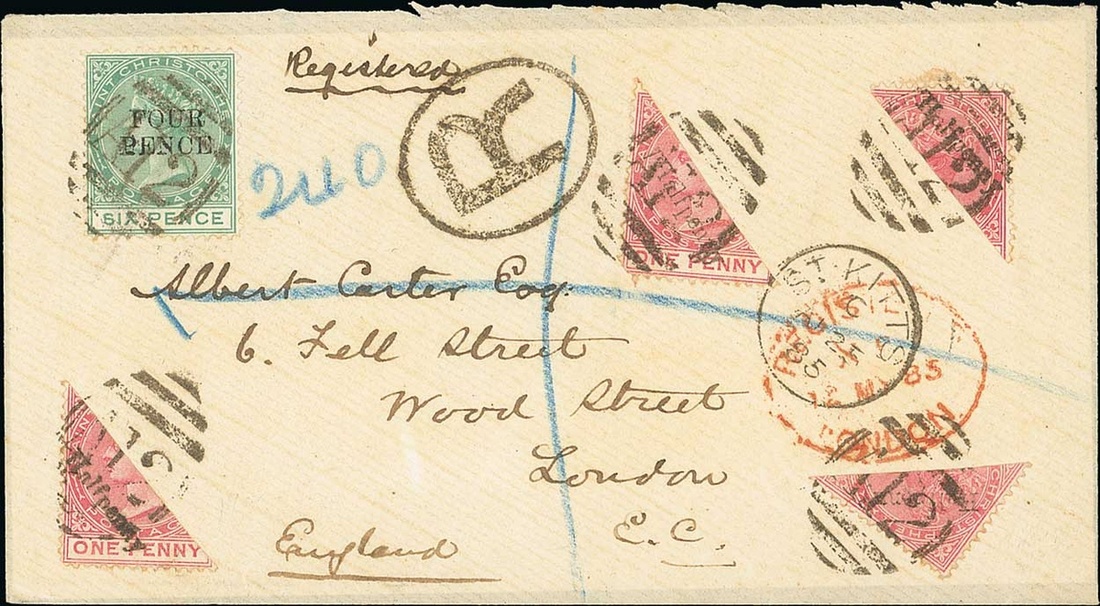 Registered
R
SAINT CHRISTOPHER
FOUR
PENCE
SIX PENCE
A12
240
Halfpenny
ONE PENNY
Albert Carter Esq.
6. Fell Street
Wood Street
London
E.C.
England
ST. KITTS
85
REGISTERED
12 MY 85
LONDON
Halfpenny
ONE PENNY
A12